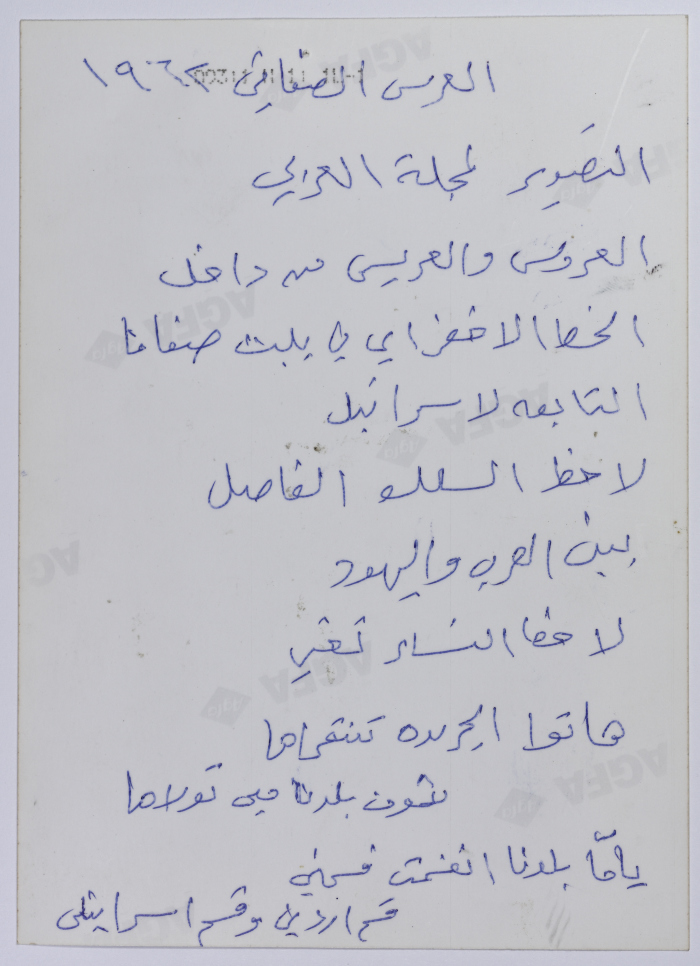 العرس الصفافي ١٩٦٢
التصوير لمجلة العربي
العروس والعريس من داخل
الخط الاخضر اي في بيت صفافا
التابعه لاسرائيل
لاحظ السلك الفاصل
بين العرب واليهود
لاحظ النساء تغني
هاتوا الجريده تنقراها
نشوف بلدنا مين تولاها
ياما بلدنا انقسمت قسمين
قسم اردني وقسم اسرائيلي
AGFA
AGFA
AGFA
AGFA
AGFA
AGFA
AGFA